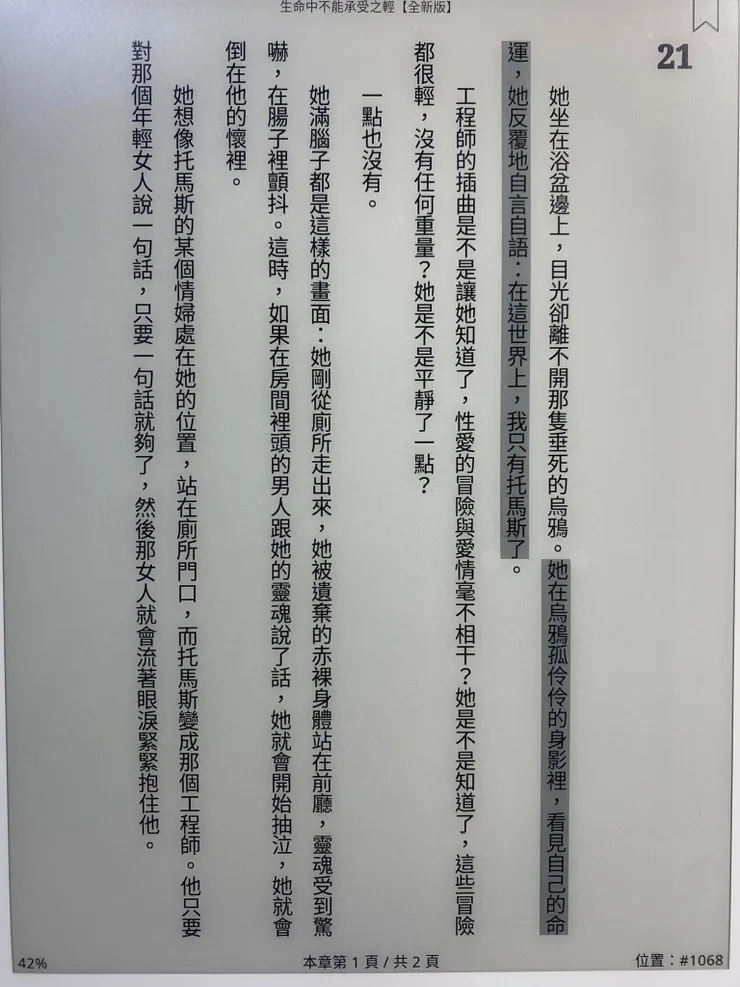 生命中不能承受之輕【全新版】
21
她坐在浴盆邊上，目光卻離不開那隻垂死的烏鴉。她在烏鴉孤伶伶的身影裡，看見自己的命
運，她反覆地自言自語：在這世界上，我只有托馬斯了。
工程師的插曲是不是讓她知道了，性愛的冒險與愛情毫不相干？她是不是知道了，這些冒險
都很輕，沒有任何重量？她是不是平靜了一點？
一點也沒有。
她滿腦子都是這樣的畫面：她剛從廁所走出來，她被遺棄的赤裸身體站在前廳，靈魂受到驚
嚇，在腸子裡顫抖。這時，如果在房間裡頭的男人跟她的靈魂說了話，她就會開始抽泣，她就會
倒在他的懷裡。
她想像托馬斯的某個情婦處在她的位置，站在廁所門口，而托馬斯變成那個工程師。他只要
對那個年輕女人說一句話，只要一句話就夠了，然後那女人就會流著眼淚緊緊抱住他。
42%
本章第 1 頁 / 共 2 頁
位置：#1068